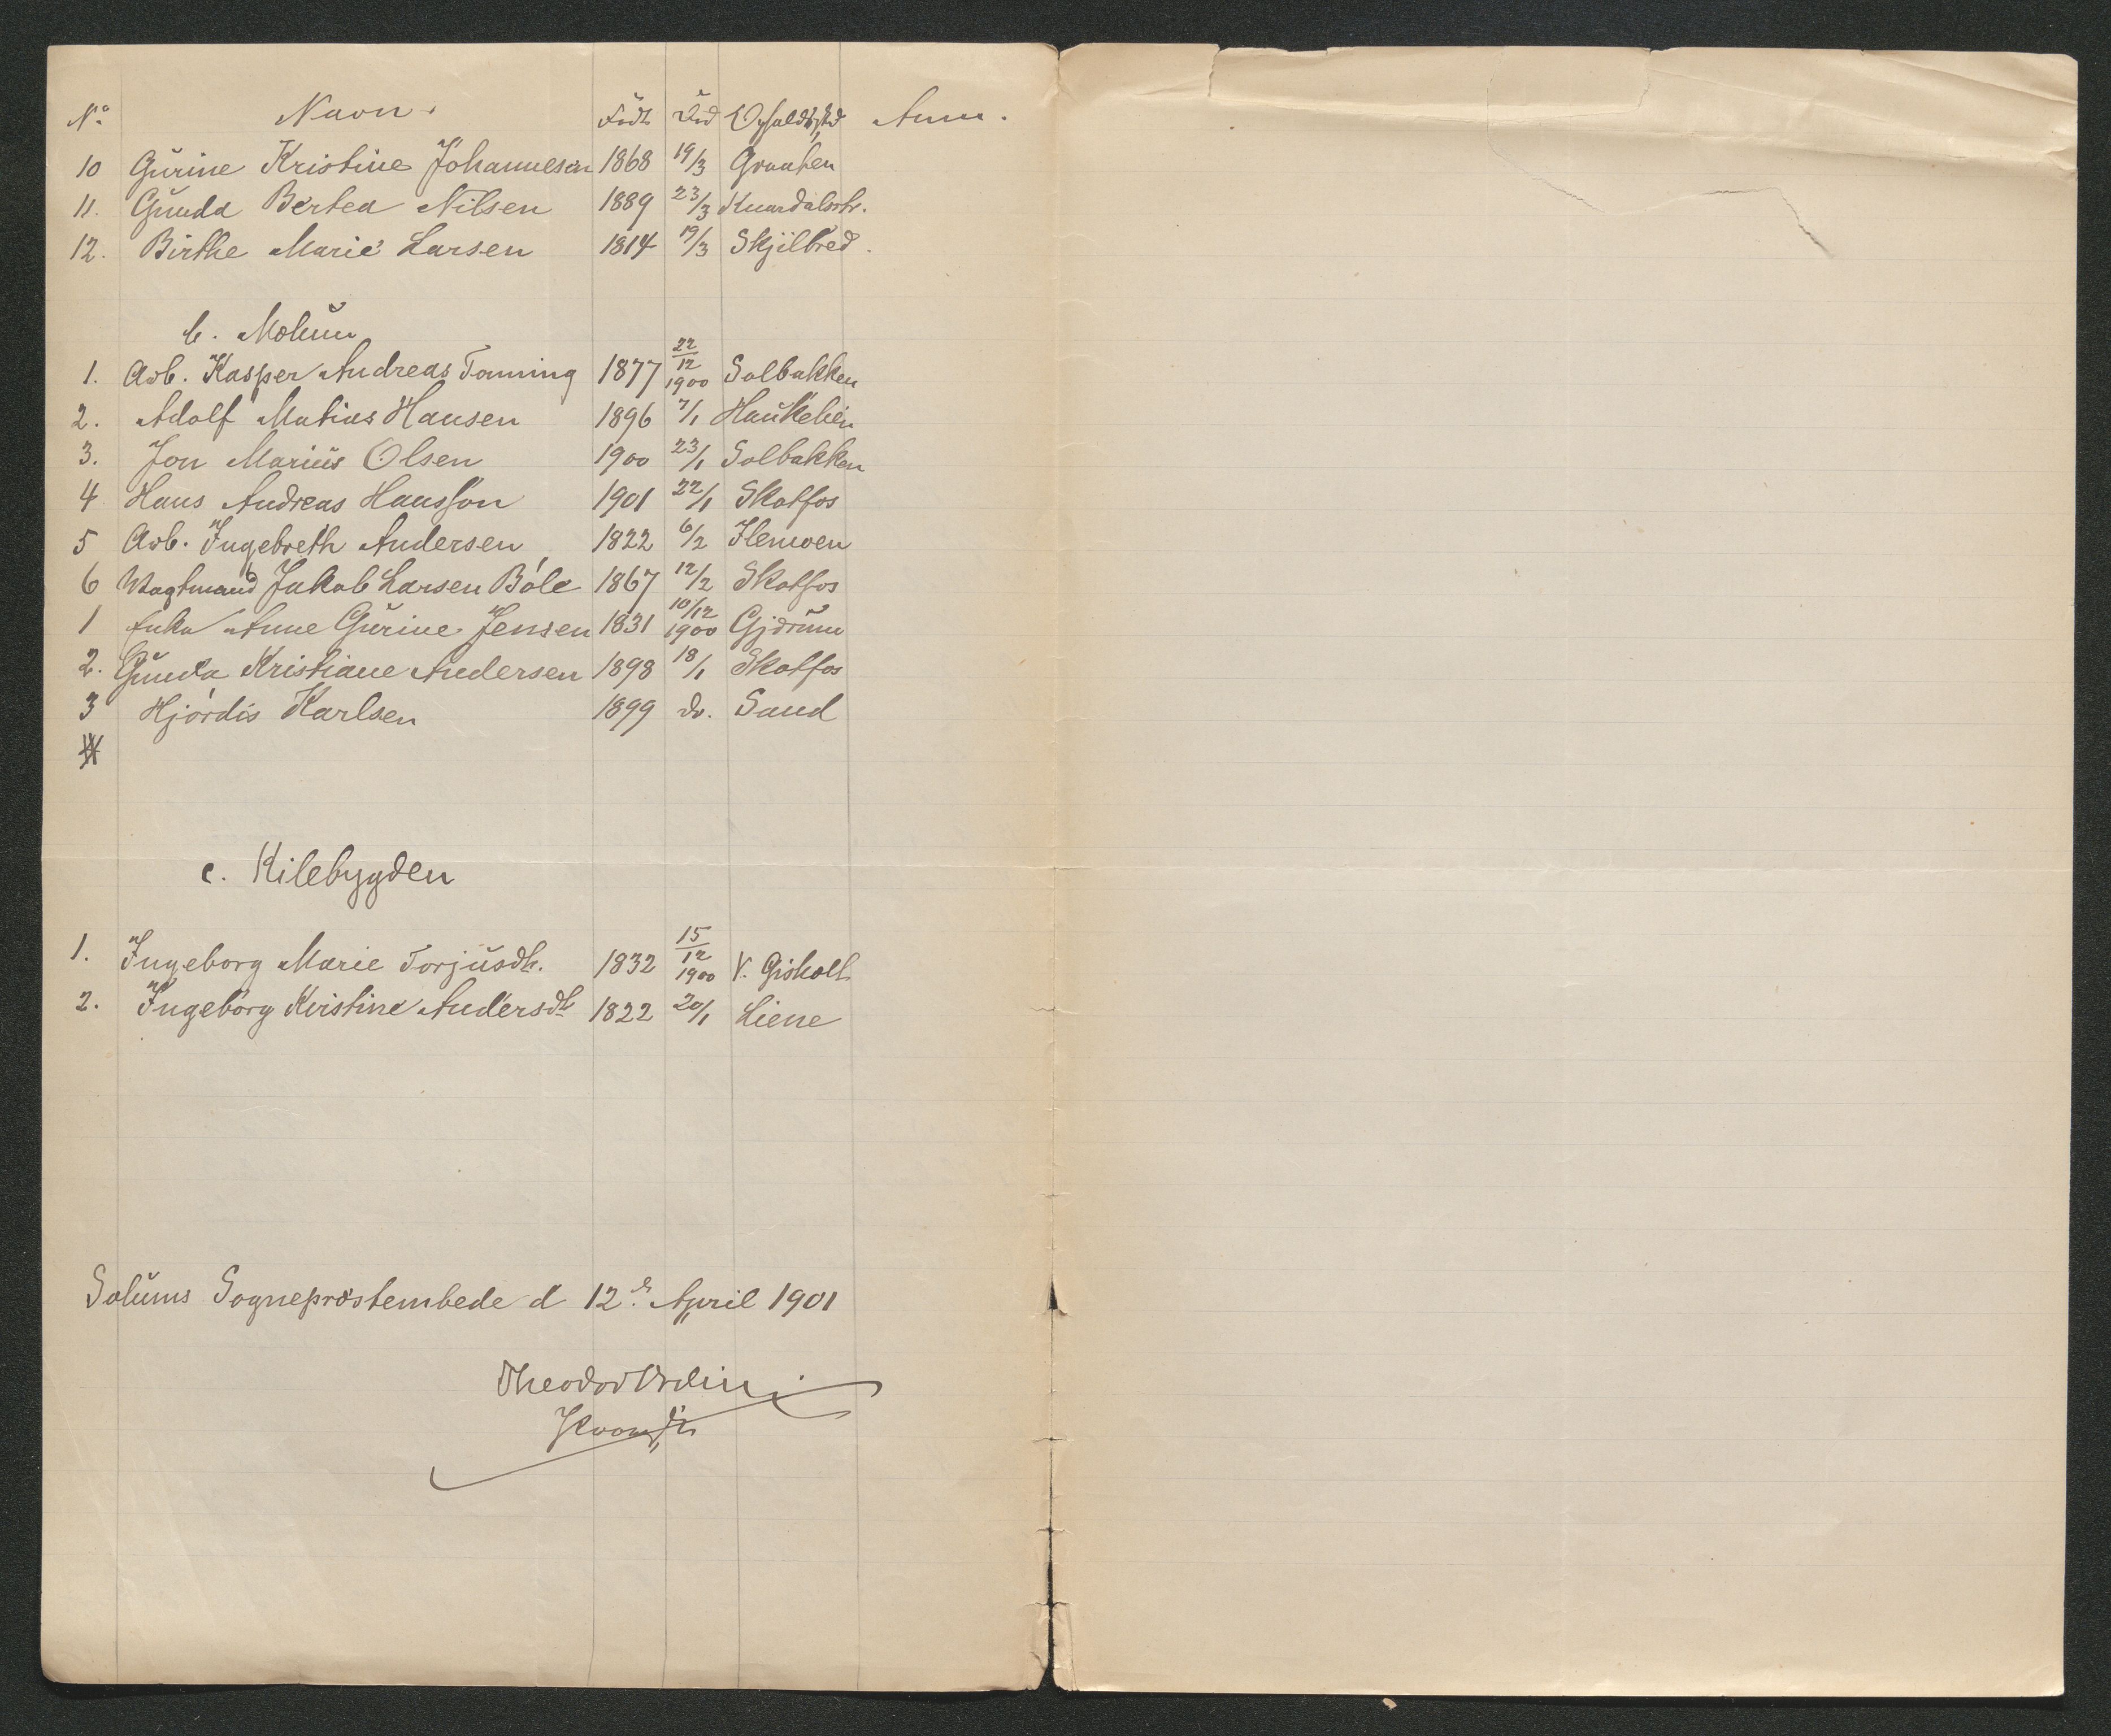 No Navn. Født Død Opholdsstd Anm.
10 Gurine Kristine Johannesen 1868 19/3 Graaten
11. Gunda Bertea Nilsen 1889 23/3 Knardalsstr.
12. Birthe Marie Larsen 1814 19/3 Skjilbred.
b. Melum
1. Arb. Kasper Andreas Tanning 1877 22/12 1900 Solbakken
2. Adolf Matias Hansen 1896 7/1 Haukelien
3. Jon Marius Olsen 1900 23/1 Solbakken
4 Hans Andreas Hansson 1901 22/1 Skotfos
5 Arb. Ingebreth Andersen 1822 6/2 Hemoen
6 Vagtmand Jakob Larsen Bøle 1867 12/2 Skotfos
1 Enke Anne Gurine Jensen 1831 10/12 1900 Gjærum
2. Gunda Kristiane Andersen 1898 18/1 Skotfos
3 Hjørdis Karlsen 1899 do. Sand
c. Kilebygden
1. Ingeborg Marie Torjusdt. 1832 15/12 1900 V. Gisholt
2. Ingeborg Kirstine Andersdt 1822 20/1 Liene
Solums Sognepræstembede d 12te April 1901
Theodor